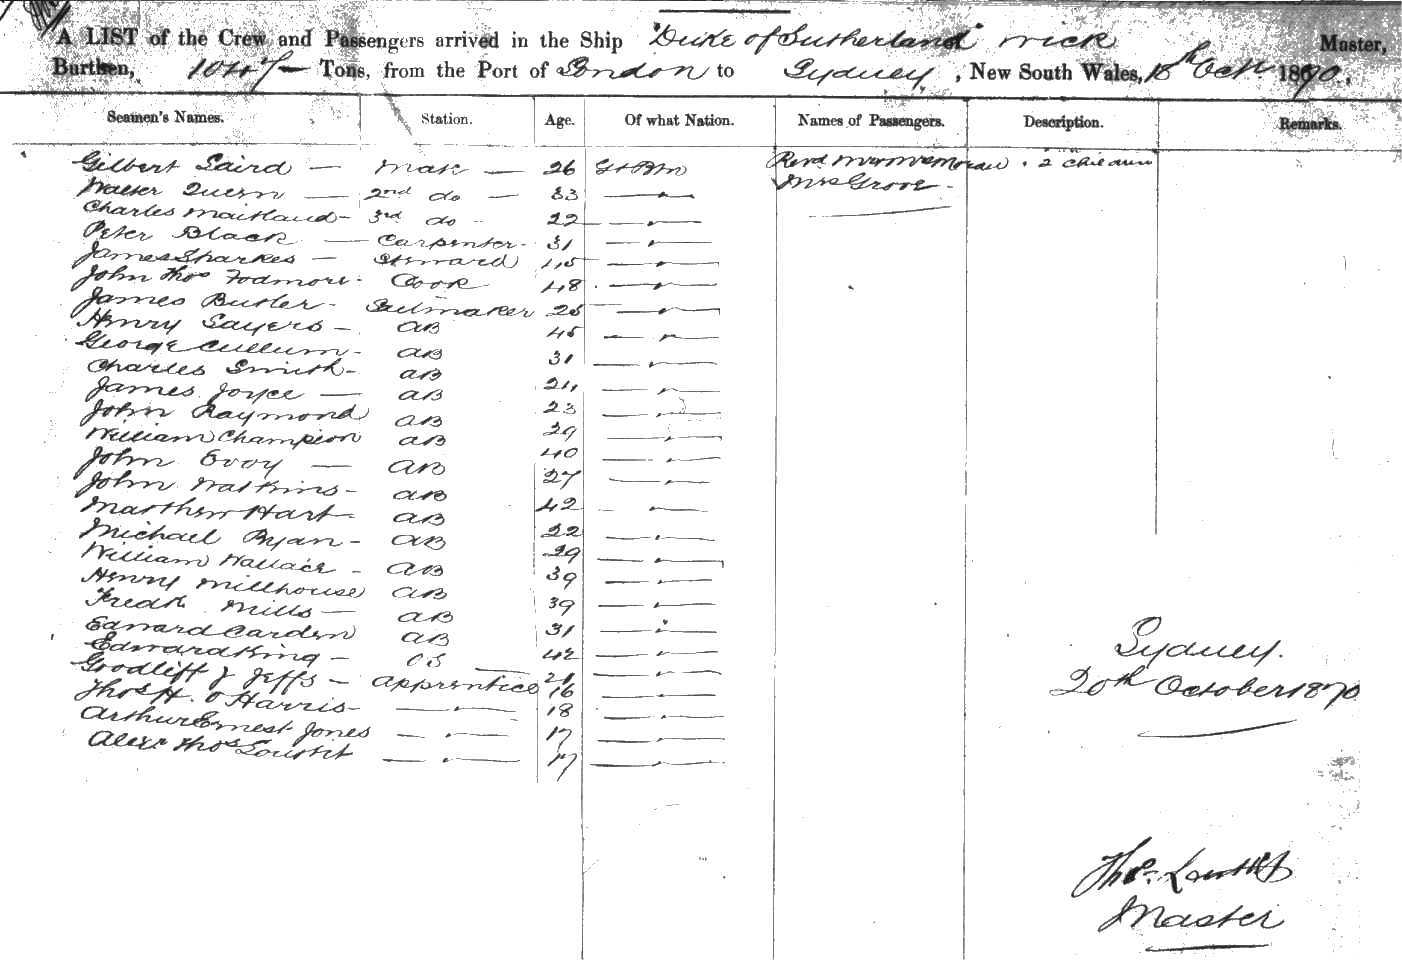 A LIST of the Crew and Passengers arrived in the Ship "Duke of Sutherland" Master,
Burthen, 1047 Tons, from the Port of London to Sydney, New South Wales, 18th Octr 1870.
Seamen's Names. Station. Age. Of what Nation. Names of Passengers. Description. Remarks.
Gilbert Laird — Mate — 26 Gt Btn Revd Mr & Mrs Moreau . 2 children
Walter Quern — 2nd do — 33 — " — Mrs Grove -
Charles Maitland - 3rd do - 22 — " —
Peter Black — Carpenter - 31 — " —
James Sharkes — Steward 45 — " —
John Thos Todmore - Cook 48 — " —
James Butler - Sailmaker 25 — " —
Henry Sayers - AB 45 — " —
George Cullum - AB 31 — " —
Charles Smith - AB 24 — " —
James Joyce — AB 23 — " —
John Raymond AB 29 — " —
William Champion AB 40 — " —
John Evoy — AB 27 — " —
John Watkins - AB 42 — " —
Matthew Hart AB 22 — " —
Michael Ryan - AB 29 — " —
William Wallace - AB 39 — " —
Henry Millhouse AB 39 — " —
Fredk Mills — AB 31 — " —
Edward Carden AB 42 — " —
Edward King - OS 21 — " —
Goodliff J Jeffs - Apprentice 16 — " —
Thos H. O Harris - — " — 18 — " —
Arthur Ernest Jones — " — 17 — " —
Alexr Thos Louttit — " — 17 — " —
Sydney.
20th October 1870
Thos. Louttit
Master